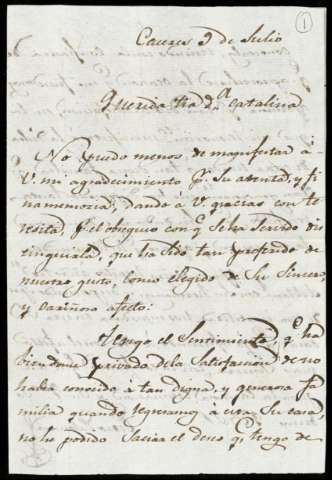 1
Caceres 9 de Julio
Querida tia d.ª Catalina
No puedo menos de manifestar á
V. mi agradecimiento p.r su atenta, y fi
na memoria; dando á V gracias con te
resita, p.r el obsequio con q.e se ha servido dis
tinguirla, que ha sido tan preferido de
nuestro gusto, como elegido de su sincero,
y cariñoso afecto:
Tengo el sentimiento, q.e ha
biendome privado de la satisfaccion de no
haber conocido á tan digna, y generosa fa
milia quando segresamos á esta su casa,
no he podido saciar el deseo q.e tengo de